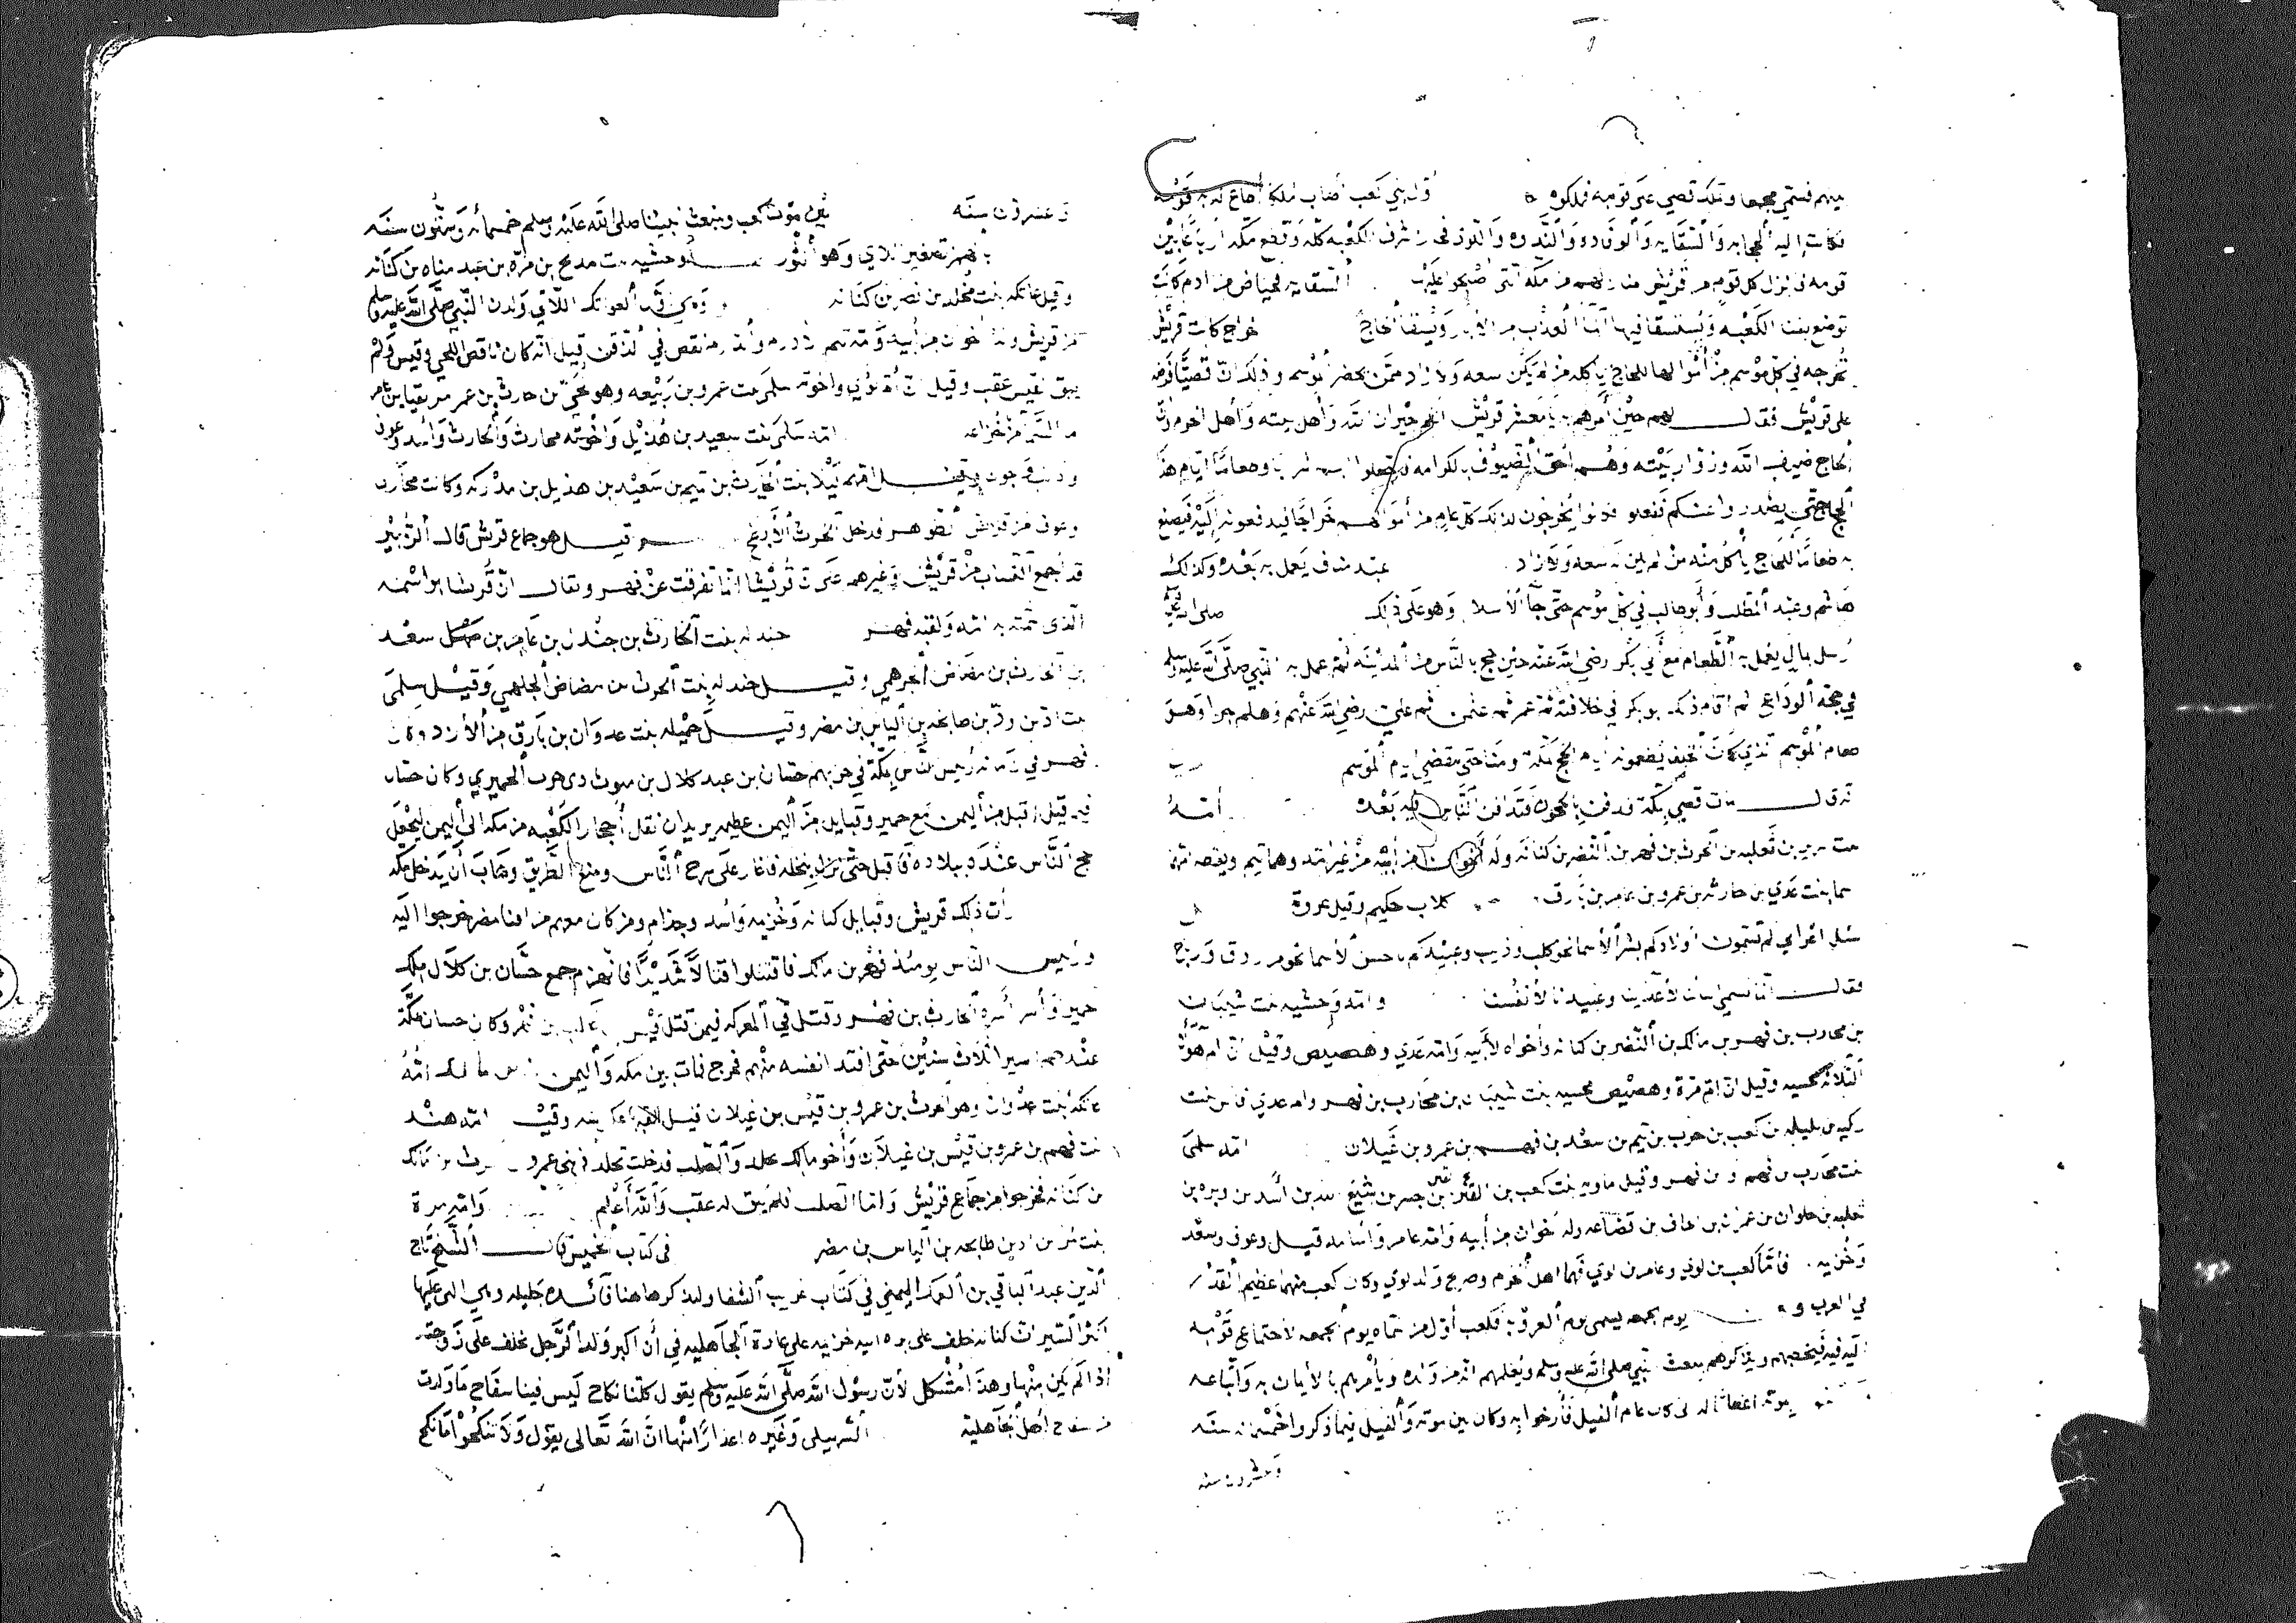 بينهم فسمي مجمعا وتملك قصي على قومه فملكوه أول بني كعب أصاب ملكا أطاع له به قومه
فكانت إليه الحجابه والسقايه والوفاده والندوه واللوى فحاز شرف الكعبه كله وقطع مكه أرباعا بين
قومه فانزل كل قوم من قريش منازلهم من مكه التي أصبحوا عليها السقايه فحياض من ادم كانت
توضع بفنا الكعبه ويستسقا فيها الما العذب من الابار ويسقا الحاج خراج كانت قريش
تخرجه في كل موسم من أموالها للحاج ياكله من لم يكن سعه ولا زاد ممن يحضر الموسم وذلك ان قصيا فرضه
على قريش فقال لهم حين أمرهم به يا معشر قريش انكم جيران الله وأهل بيته وأهل الحرم وان
الحاج ضيوف الله وزوار بيته وهم أحق الضيوف بالكرامه فاجعلوا لهم شرابا وطعاما ايام هذا
الحج حتى يصدروا عنكم ففعلو فكانوا يخرجون لذلك كل عام من أموالهم خراجا فيدفعونه إليه فيصنع
به طعاما للحاج يأكل منه من لم يكن له سعه ولا زاد عبد مناف يعمل به بعده وكذلك
هاشم وعبد المطلب وأبو طالب في كل موسم حتى جا الاسلام وهو على ذلك صلى الله عليه
أرسل بمال يعمل به الطعام مع أبي بكر رضي الله عنه حين حج بالناس من المدينه ثم عمل به النبي صلى الله عليه وسلم
في حجه الوداع ثم اقام ذلك ابو بكر في خلافته ثم عمر ثم عثمن ثم علي رضي الله عنهم وهلم جرا وهو
طعام الموسم الذي كانت الخلفا يطعمونه أيام الحج بمكة ومنا حتى تنقضي ايام الموسم
قال مات قصي بمكة فدفن بالحجون فتدافن الناس فيه بعده أمه
بنت سرير بن ثعلبه بن الحرث بن فهر بن مالك بن النضر بن كنانه وله أخوان من أبيه من غير امه وهما تيم ويقظه امهما
اسما بنت عدي بن حارثه بن عمرو بن عامر بن بارق كلاب حكيم وقيل عروة
سئل اعرابي لم تسمون أولادكم بشر الأسما نحو كلب وذيب وعبيدكم باحسن الأسما نحو مرزوق ورباح
فقال انما نسمي ابنانا لاعدائنا وعبيدنا لأنفسنا وامه وحشيه بنت شيبان
بن محارب بن فهر بن مالك بن النضر بن كنانه وأخواه لأبيه وامه عدي وهصيص وقيل ان ام هولا
الثلاثه محسيه وقيل ان ام مرة وهصيص محسيه بنت شيبان بن محارب بن فهر وام عدي
بن كعب بن حرب بن تيم بن سعد بن فهم بن عمرو بن غيلان امه سلمى
بنت محارب بن فهم وقيل ماويه بنت كعب بن القين بن جسر بن شيع الله بن أسد بن وبره بن
ثعلبه بن حلوان بن عمران بن الحاف بن قضاعه وله أخوان من أبيه وامه عامر وأسامه قيل وعوف وسعد
وخزيمه فأما كعب بن لوي وعامر بن لوي فهما اهل الحرم وصريح ولد لوي وكان كعب منهما عظيم القدر
في العرب يوم الجمعه يسمى يوم العروبة فكعب أول من سماه يوم الجمعه لاجتماع قومه
اليه فيه فيخطبهم ويذكرهم بمبعث النبي صلى الله عليه وسلم ويعلمهم انه من ولده ويأمرهم بالايمان به واتباعه
موته اعظاما له الى كان عام الفيل فأرخوا به وكان بين موته والفيل فيما ذكروا خمسمائه سنه
وعشرون سنه
وعشرون سنه بين موت كعب ومبعث نبينا صلى الله عليه وسلم خمسمائه وستون سنه
بهمز تصغير اللاي وهو الثور وحشيه بنت مدلج بن مره بن عبد مناه بن كنانه
وقيل عاتكه بنت مخلد بن نضر بن كنانه وهي أول العواتك اللاتي ولدن النبي صلى الله عليه وسلم
من قريش وله أخوان من أبيه وامه تيم نقص في الذقن قيل انه كان ناقص اللحي وقيس ولم
يبق لقيس عقب وقيل ان أم لؤي واخوته سلمى بنت عمرو بن ربيعه وهو لحي بن حارثه بن عمر مزيقيا بن عامر
ما السما من خزاعه امه سلمى بنت سعيد بن هذيل واخوته محارب والحارث وأسد وعوف
وقيل امهم ليلا بنت الحارث بن تيم بن سعيد بن هذيل بن مدركه وكانت محارب
وعوف من قريش الظواهر فدخل الحرث الأبطح وقيل هو جماع قريش قال الزبير
قد أجمع النساب من قريش وغيرهم على ان قريشا انما تفرقت عن فهر ويقال ان قريشا هو اسمه
الذى سمته به امه ولقبه فهر جندله بنت الحارث بن جندل بن عامر بن سعد
بن الحارث بن مضاض الجرهمي وقيل جندله بنت الحرث بن مضاض الجلهمي وقيل سلمى
بنت اد بن طابخه بن الياس بن مضر وقيل جميله بنت عدوان بن بارق من الأزد وكان
فهر في زمانه رئيس الناس بمكة في حربهم حسان بن عبد كلال بن مثوب ذى حرث الحميري وكان حسان
فيما قيل اقبل من اليمن مع حمير وقبايل من اليمن عظيمه يريد ان ينقل أحجار الكعبه من مكه الى اليمن ليجعل
حج الناس عنده ببلاده فأقبل حتى نزل بنخله فاغار على سرح الناس ومنع الطريق وهاب أن يدخل مكه
رأت ذلك قريش وقبايل كنانه وخزيمه وأسد وجذام ومن كان معهم من افنا مضر خرجوا اليه
ورئيس الناس يومئذ فهر بن مالك فاقتتلوا قتالا شديدا فانهزم جمع حسان بن كلال ملك
حمير وأسر أسره الحارث بن فهر وقتل في المعركه فيمن قتل قيس بن غالب بن فهر وكان حسان بمكة
عندهم اسيرا ثلاث سنين حتى افتدا نفسه منهم فخرج فمات بين مكه واليمن مالك امه
عاتكة بنت عدوان وهو الحرث بن عمرو بن قيس بن غيلان قيل لقبها عكرشه وقيل امه هند
بنت فهم بن عمرو بن قيس بن غيلان وأخو مالك مخلد والصلت فدخلت مخلد في بني عمرو بن الحرث بن مالك
بن كنانه فخرجوا من جماع قريش واما الصلت فلم يبق له عقب والله أعلم وامه برة
بنت مر بن اد بن طابخه بن الياس بن مضر فى كتاب الخميس قال الشيخ تاج
الدين عبد الباقي بن اليمني في كتاب غريب الشفا ولنذكر هاهنا فائده جليله وهي التي عليها
اكثر السير ان كنانه خلف على بره ابيه خزيمه على عادة الجاهليه في أن اكبر ولد الرجل يخلف على زوجته
إذا لم يكن منها وهذا مشكل لأن رسول الله صلى الله عليه وسلم يقول كلنا نكاح ليس فينا سفاح ما ولدت
من سفاح أهل الجاهلية السهيلى وغيره اعذارا منها ان الله تعالى يقول ولا تنكحوا ما نكح